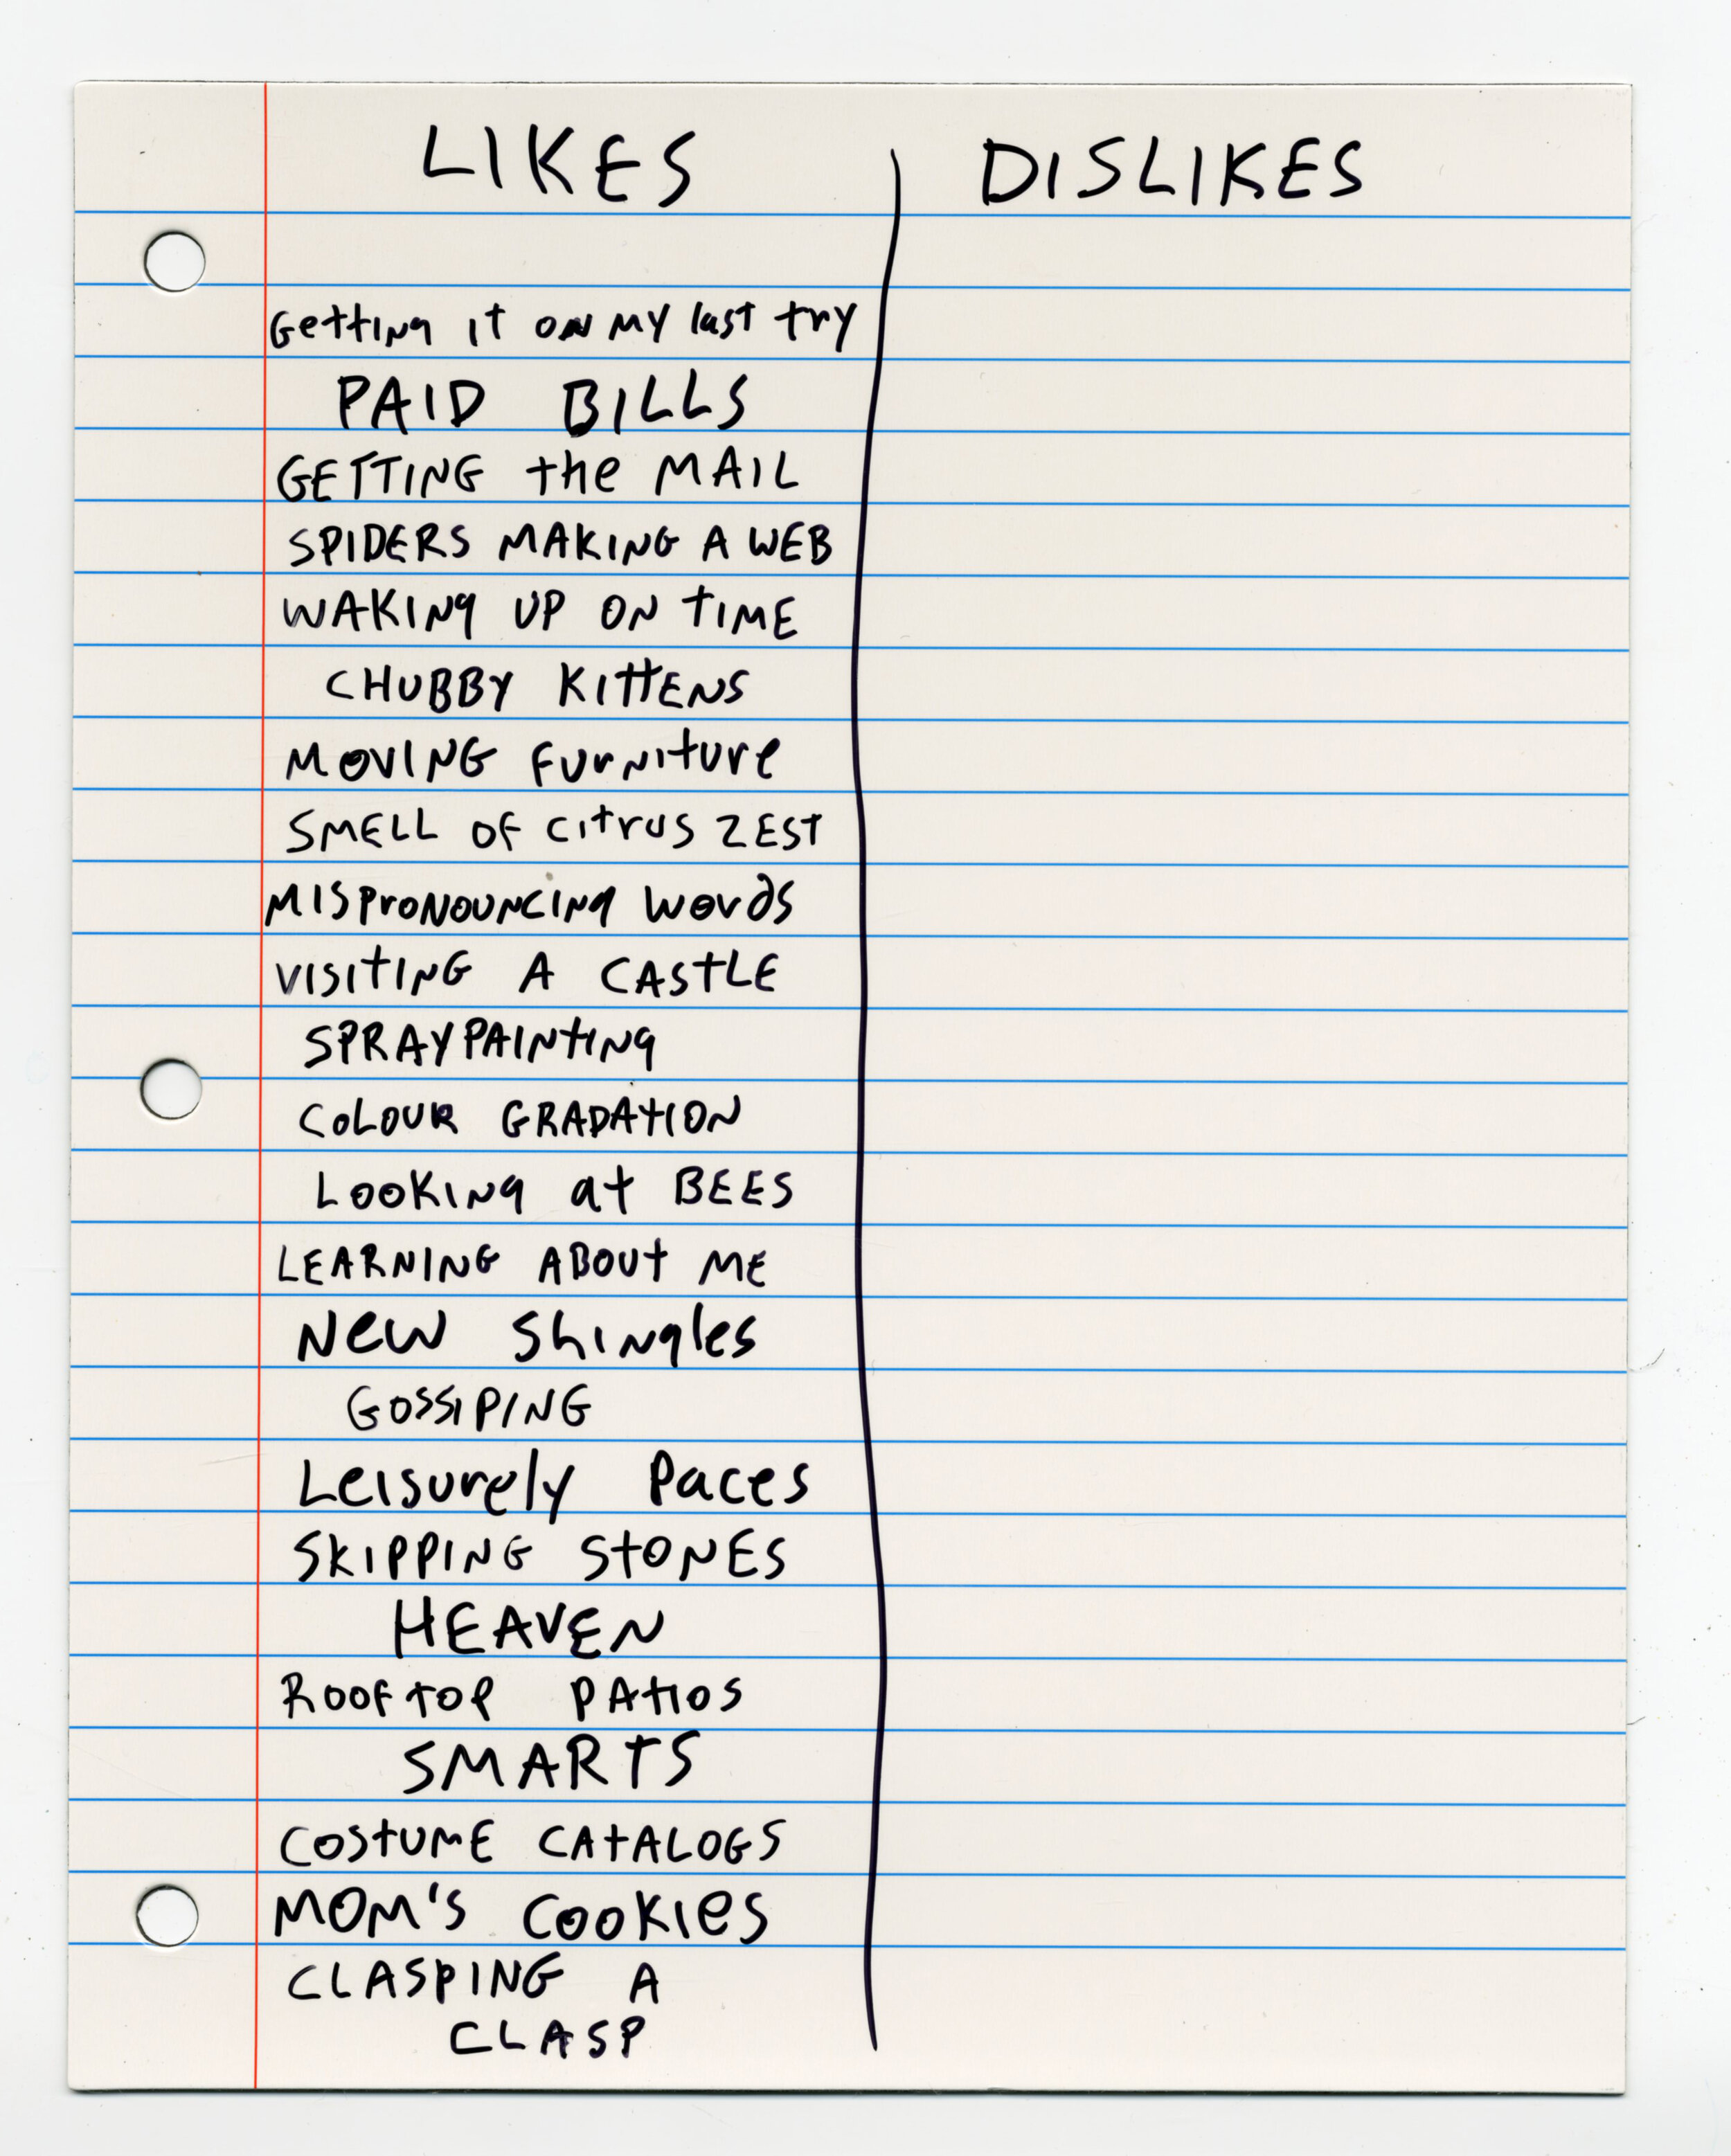 LIKES DISLIKES
Getting it on my last try
PAID BILLS
GETTING the MAIL
SPIDERS MAKING A WEB
WAKING UP ON TIME
CHUBBY KITTENS
MOVING FURNITURE
SMELL OF CITRUS ZEST
MISPRONOUNCING WORDS
VISITING A CASTLE
SPRAYPAINTING
COLOUR GRADATION
LOOKING at BEES
LEARNING ABOUT ME
New Shingles
GOSSIPING
Leisurely Paces
SKIPPING STONES
HEAVEN
ROOFTOP PATIOS
SMARTS
COSTUME CATALOGS
MOM'S COOKIES
CLASPING A
CLASP